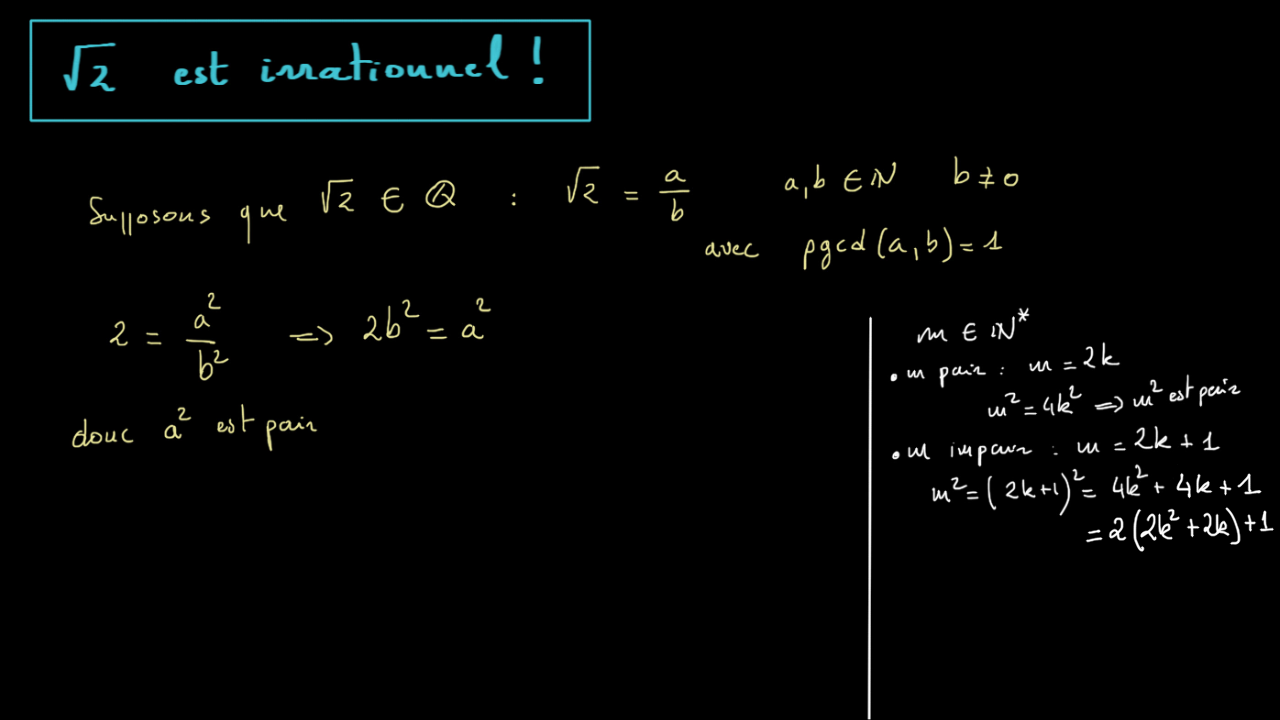 √2 est irrationnel !
Supposons que √2 ∈ ℚ : √2 = a/b a, b ∈ ℕ b ≠ 0
avec pgcd(a, b) = 1
2 = a²/b² => 2b² = a²
donc a² est pair
m ∈ ℕ*
• m pair : m = 2k
m² = 4k² => m² est pair
• m impair : m = 2k + 1
m² = (2k+1)² = 4k² + 4k + 1
= 2(2k² + 2k) + 1